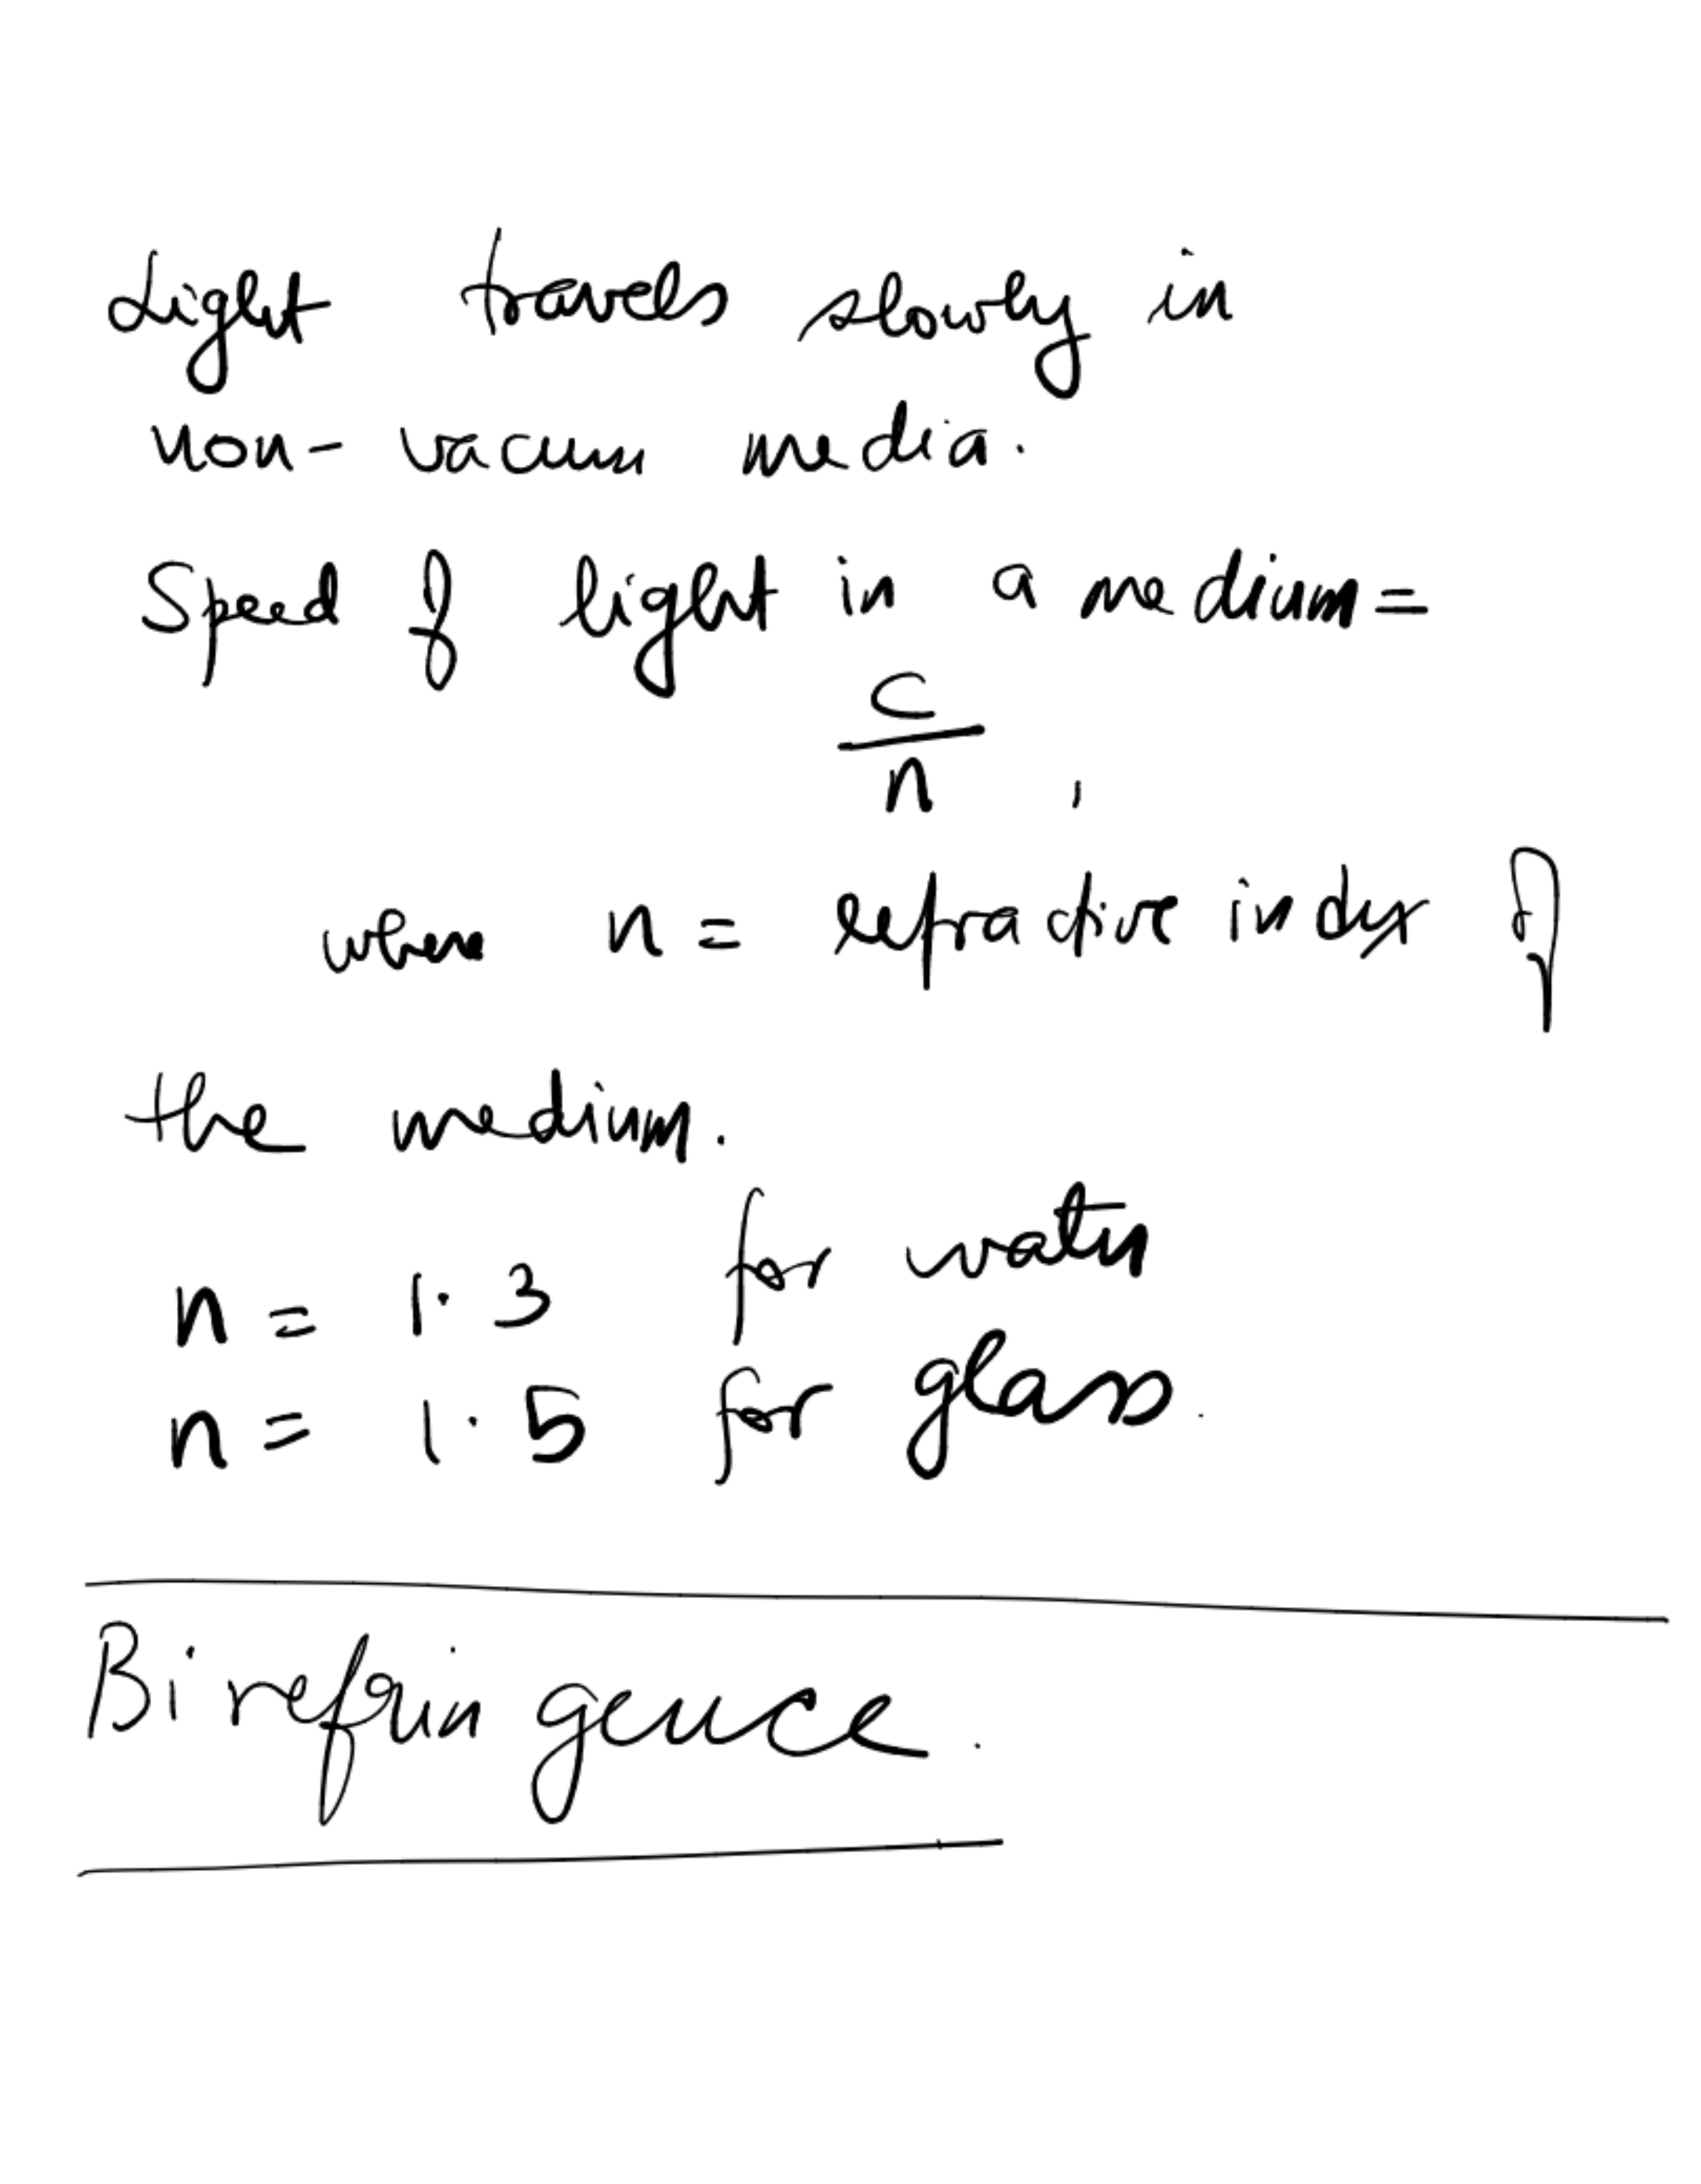 Light travels slowly in
non-vacuum media.
Speed of light in a medium =
c
n ,
where n = refractive index of
the medium.
n = 1.3 for water
n = 1.5 for glass.
Birefringence.